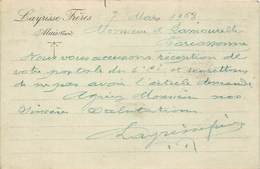 Layrisse Frères
7 Mars 1903
Monsieur Lamourelle
Carcassonne
Nous vous accusons réception de
votre postale du 6 ct et regrettons
de ne pas avoir l'article demandé
Agréez Monsieur nos
Sincères Salutations
Layrisse frères